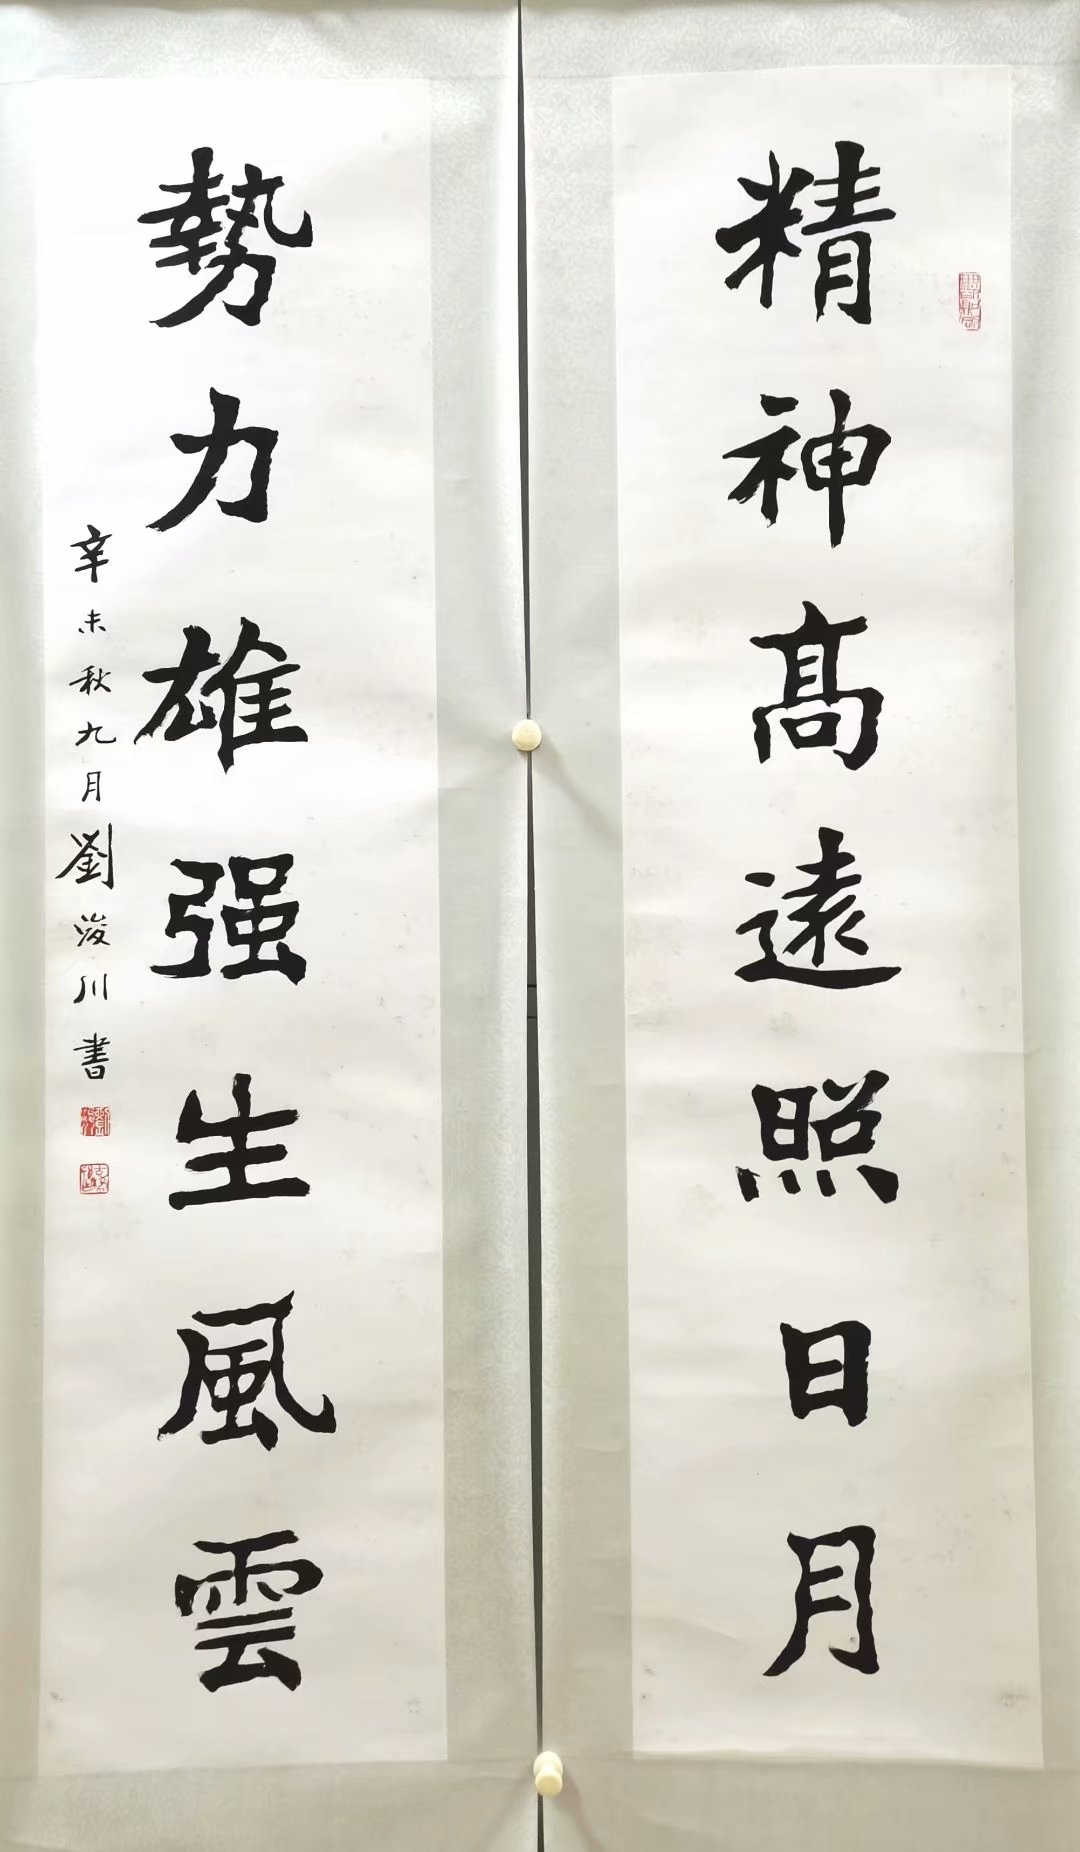 精神高遠照日月
勢力雄强生風雲
辛未秋九月劉浚川書